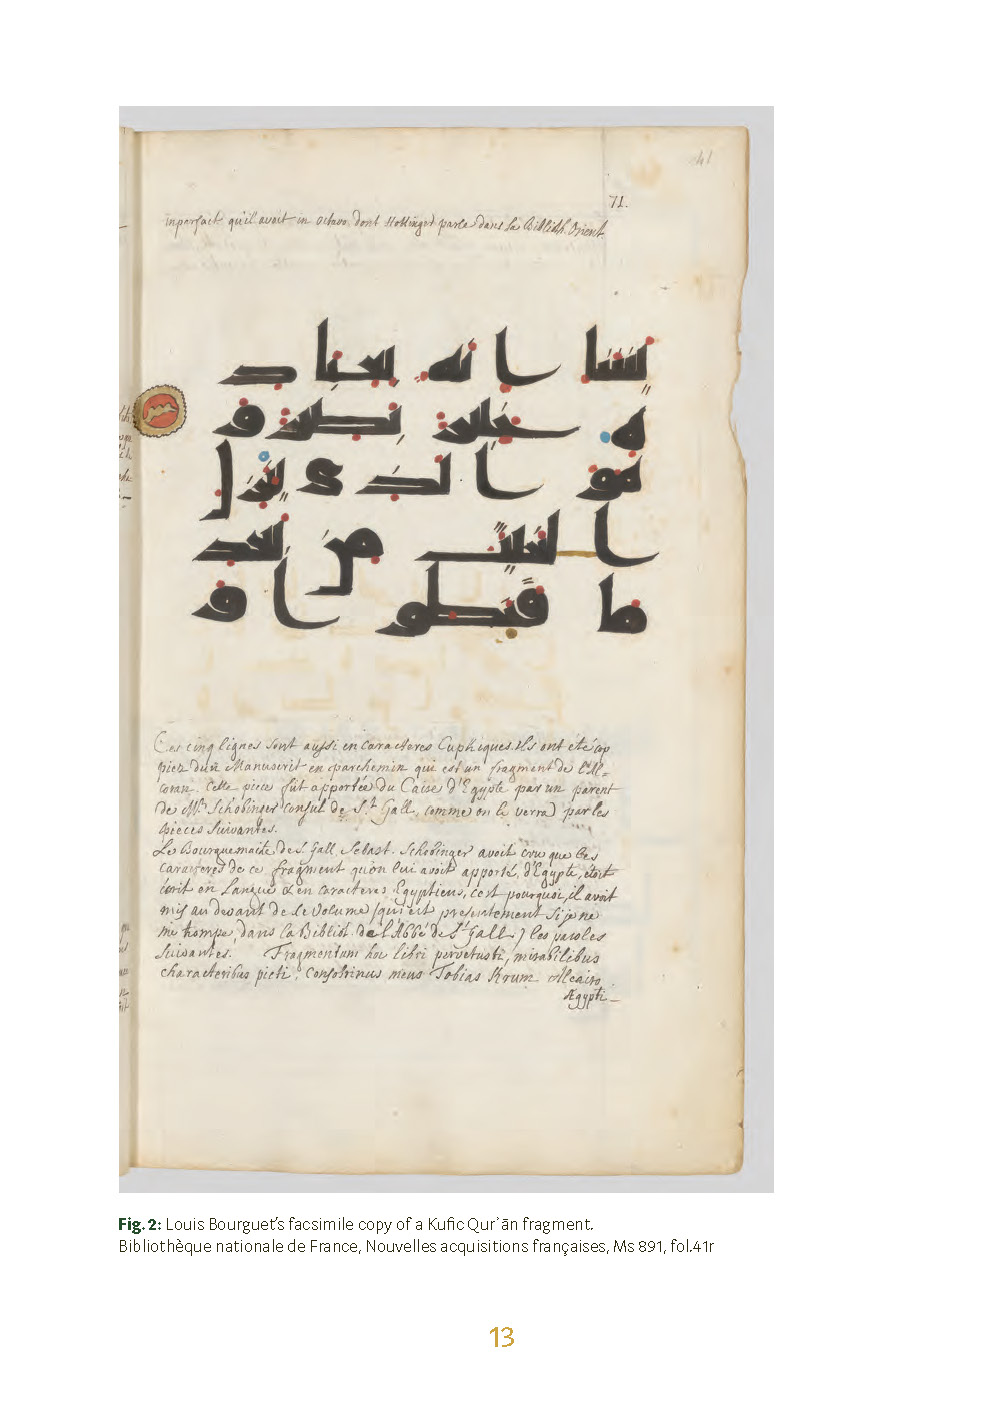 41
71.
inparfait qu'il avoit in octavo dont Hottinger parle dans sa Biblioth. Orient.
يشا انه بعباد
ه خبير بصير و
هو الذى ينزل
الغيث من بعد
ما قنطوا و
Ces cinq lignes sont aussi en caracteres Cuphiques. Ils ont été cop
piez d'un Manuscrit en parchemin qui est un fragment de l'Al-
coran. Cette piece fût apportée du Caire d'Egypte par un parent
de Mr. Schobinger Consul de St. Gall, comme on le verra par les
pieces suivantes.
Le Bourguemaitre de S. Gall Sebast. Schobinger avoit cru que les
caracteres de ce fragment qu'on lui avoit apporté, d'Egypte, étoit
écrit en Langue & en caracteres Egyptiens, c'est pourquoi, il avoit
mis au devant de le Volume (qui est presentement si je ne
me trompe, dans la Biblioth. de l'Abbé de St. Gall.) les paroles
suivantes. Fragmentum hoc libri pervetusti, mirabilibus
characteribus picti, Consobrinus meus Tobias Krum Alcairo
Ægypti_
Fig. 2: Louis Bourguet's facsimile copy of a Kufic Qurʾān fragment.
Bibliothèque nationale de France, Nouvelles acquisitions françaises, Ms 891, fol.41r
13